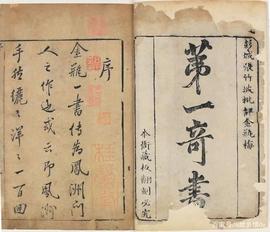 彭城張竹坡批評金瓶梅
第一奇書
本衙藏板翻刻必究
序
金瓶一書傳為鳳洲門
人之作也或云即鳳洲
手然纚々洋々一百回